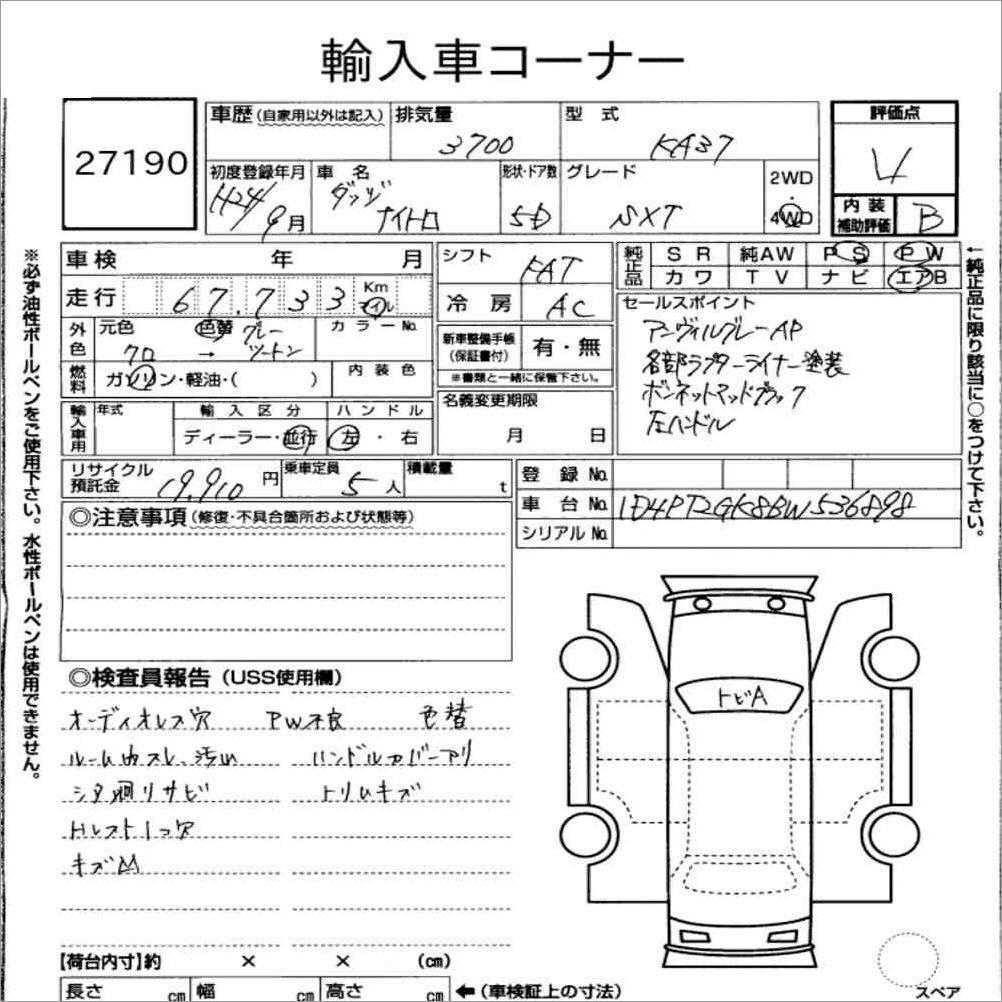 輸入車コーナー
27190
車歴 (自家用以外は記入) 排気量 3700 型式 KA37 評価点 4
初度登録年月 H24/9月 車名 ダッジ ナイトロ 形状・ドア数 5D グレード SXT 2WD 4WD
内装補助評価 B
車検 年 月
走行 67,733 Km マイル
外色 元色 クロ → 色替 グレー ツートン カラーNo.
燃料 ガソリン・軽油・( ) 内装色
輸入車用 年式 輸入区分 ディーラー・並行 ハンドル 左・右
シフト FAT
冷房 AC
新車整備手帳 (保証書付) 有・無
※書類と一緒に保管下さい。
名義変更期限 月 日
純正品 SR 純AW PS PW
カワ TV ナビ エアB
セールスポイント
アンヴィルグレーAP
各部ラプターライナー塗装
ボンネットマッドブラック
左ハンドル
リサイクル預託金 19,910円 乗車定員 5人 積載量 t
登録No.
車台No. 1D4PT2GK8BW536898
シリアルNo.
◎注意事項 (修復・不具合箇所および状態等)
◎検査員報告 (USS使用欄)
オーディオレス穴 PW不良 色替
ルーム内スレ、汚れ ハンドルカバーアリ
シタ廻リサビ トリムキズ
キズ凹
トビA
【荷台内寸】約 × × (cm)
長さ cm 幅 cm 高さ cm ←(車検証上の寸法)
スペア
※必ず油性ボールペンをご使用下さい。水性ボールペンは使用できません。
←純正品に限り該当に○をつけて下さい。